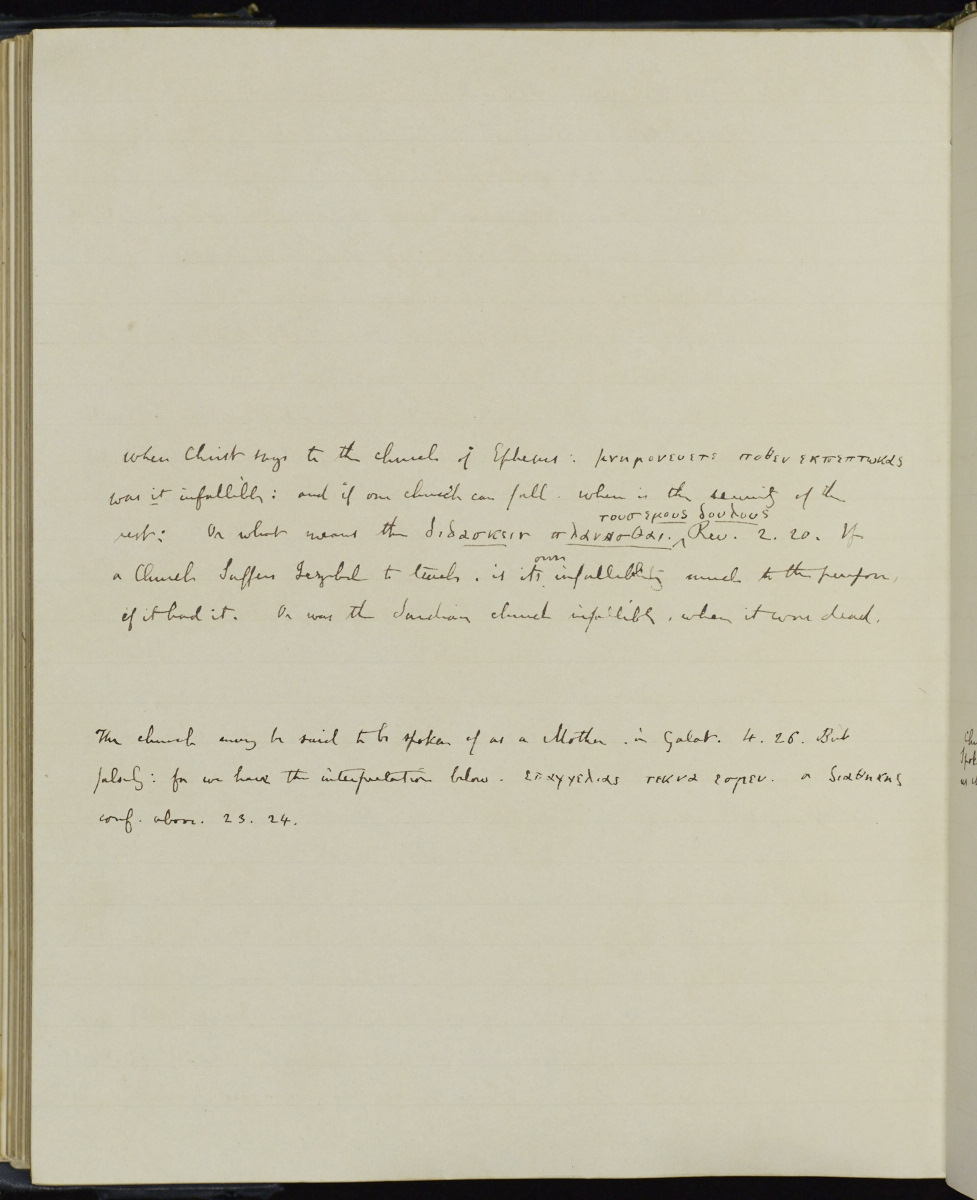 when Christ says to the church of Ephesus: μνημονευετε ποθεν εκπεπτωκας
was it infallible: and if one church can fall. where is the security of the
rest: Or what means the διδασκειν πλανασθαι. τους εμους δουλους Rev. 2. 20. If
a Church suffers Jezebel to teach. is its own infallibility much to the purpose,
if it had it. Or was the Sardian church infallible, when it was dead.
The church may be said to be spoken of as a Mother. in Galat. 4. 26. But
falsely: for we have the interpretation below. επαγγελιας τεκνα εσμεν. or διαθηκης
conf. above. 23. 24.